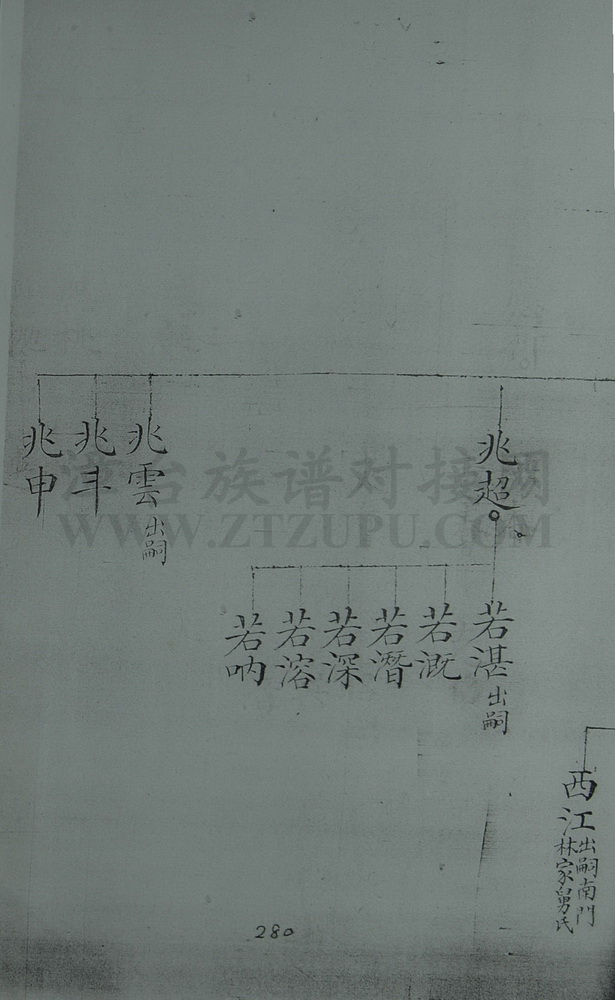 兆超
兆雲出嗣
兆斗
兆申
若湛出嗣
若溉
若潛
若深
若溶
若吶
西江出嗣南門
林家舅氏
280
台族谱对接网
WWW.ZTZUPU.COM